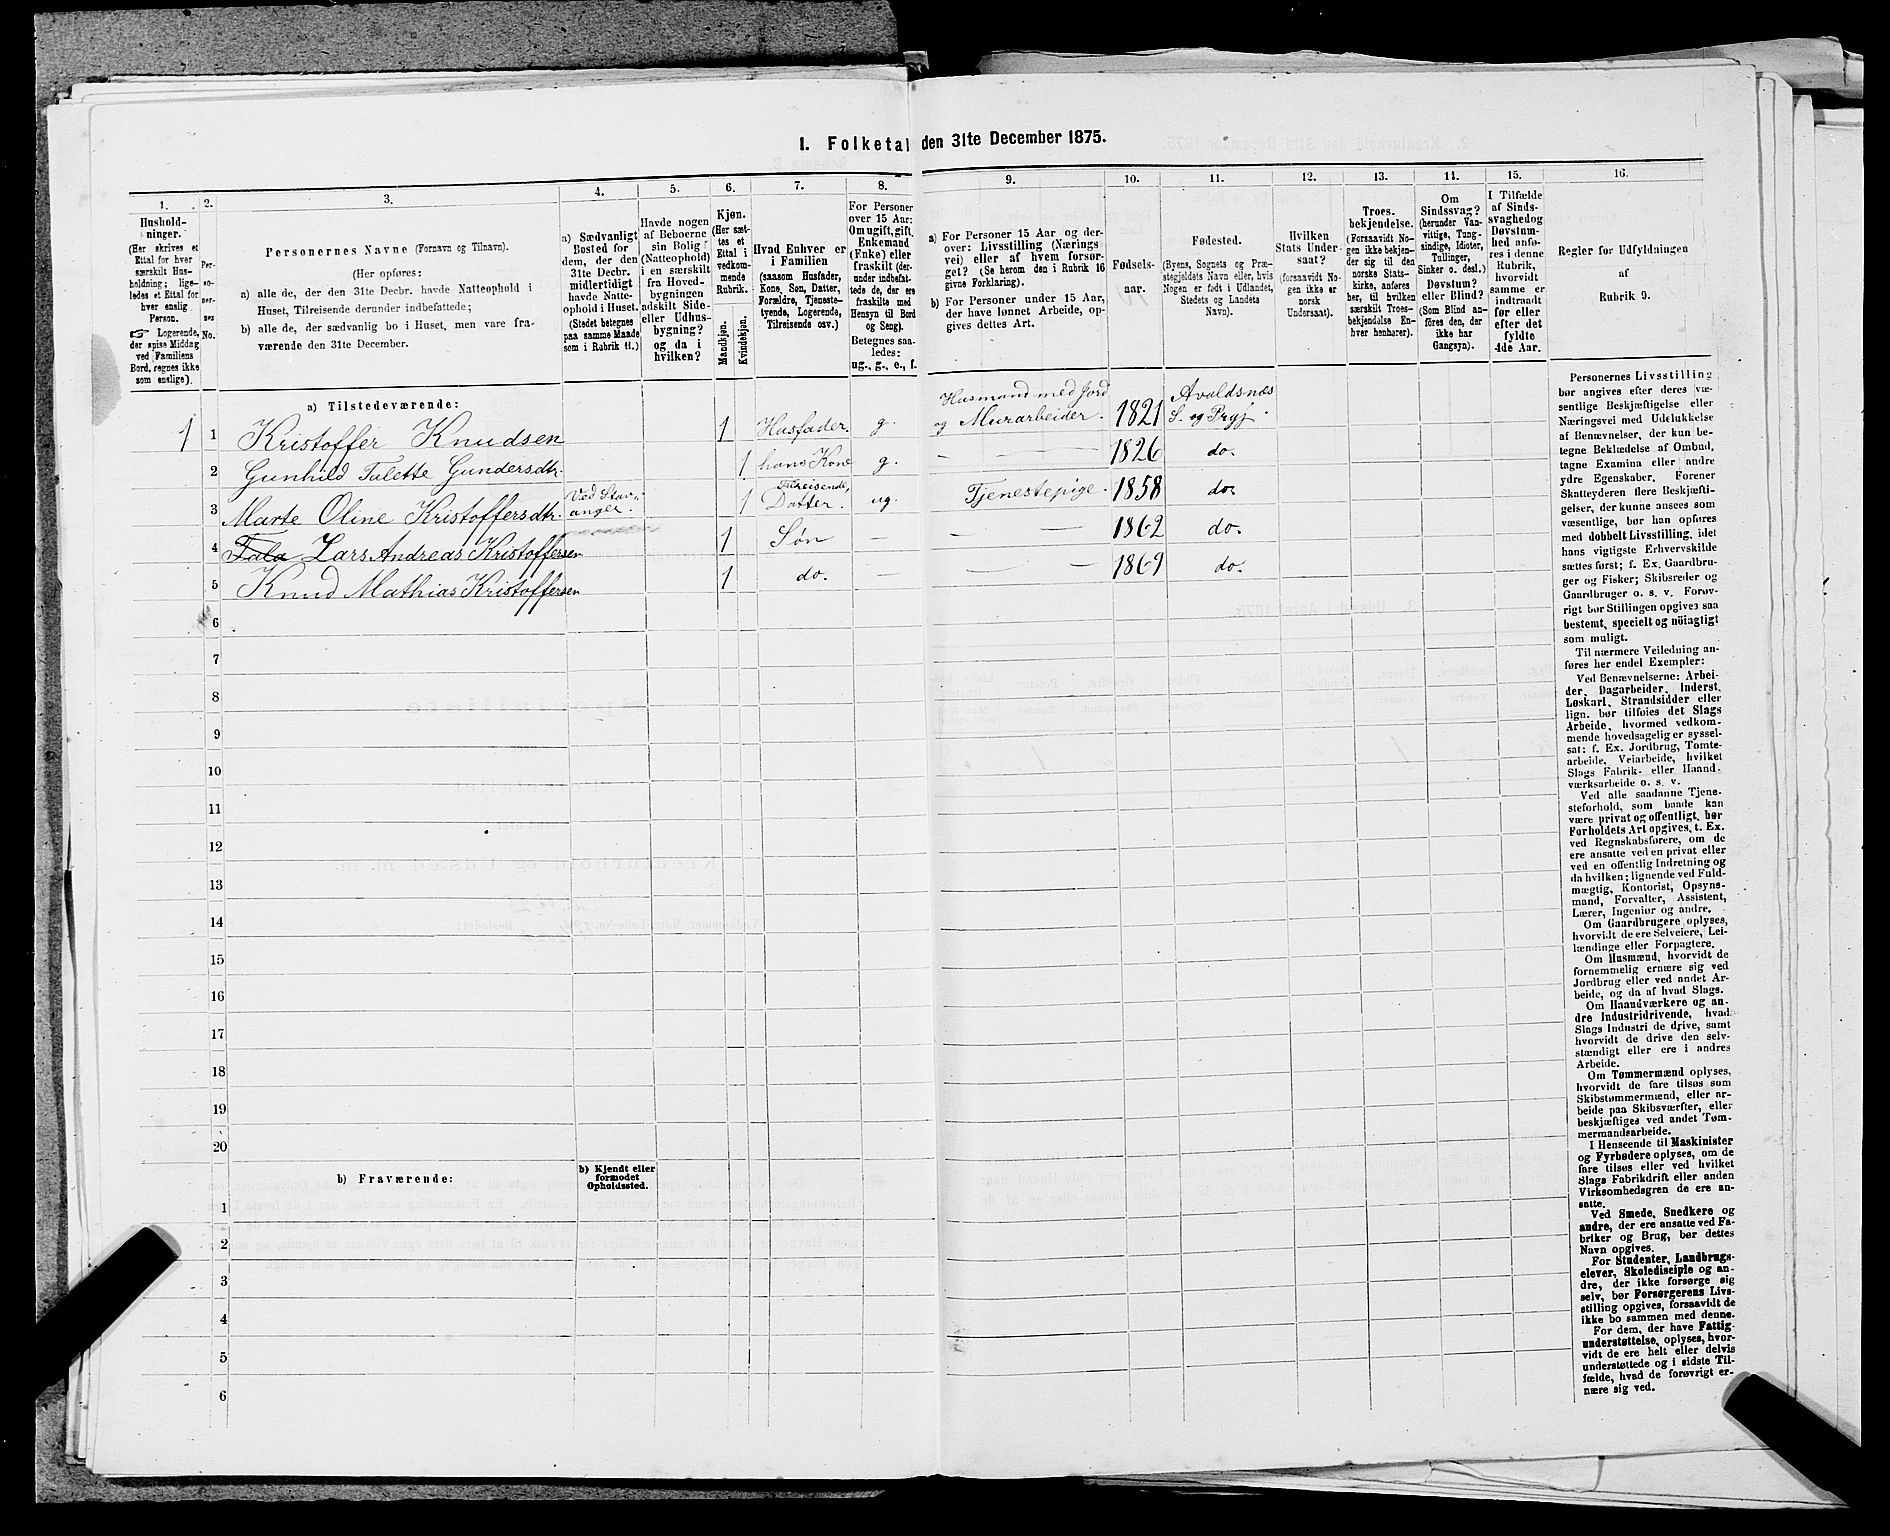 I. Folketal den 31te December 1875.
1. 2. 3. 4. 5. 6. 7. 8. 9. 10. 11. 12. 13. 14. 15. 16.
Hushold-
ninger.
(Her skrives et
Ettal for hver
særskilt Hus-
holdning; lige-
ledes et Ettal for
hver enslig
Person.
☞ Logerende,
der spise Middag
ved Familiens
Bord, regnes ikke
som enslige).
Per-
so-
ner-
nes
No.
Personernes Navne (Fornavn og Tilnavn).
(Her opføres:
a) alle de, der den 31te Decbr. havde Natteophold i
Huset, Tilreisende derunder indbefattede;
b) alle de, der sædvanlig bo i Huset, men vare fra-
værende den 31te December.
a) Sædvanligt
Bosted for
dem, der den
31te Decbr.
midlertidigt
havde Natte-
ophold i Huset.
(Stedet betegnes
paa samme Maade
som i Rubrik 11.)
Havde nogen
af Beboerne
sin Bolig
(Natteophold)
i en særskilt
fra Hoved-
bygningen
adskilt Side-
eller Udhus-
bygning?
og da i
hvilken?
Kjøn.
(Her sæt-
tes et
Ettal i
vedkom-
mende
Rubrik.
Mandkjøn.
Kvindekjøn.
Hvad Enhver er
i Familien
(saasom Husfader,
Kone, Søn, Datter,
Forældre, Tjeneste-
tyende, Logerende,
Tilreisende osv.)
For Personer
over 15 Aar:
Om ugift, gift,
Enkemand
(Enke) eller
fraskilt (der-
under indbefat-
tede de, der ere
fraskilte med
Hensyn til Bord
og Seng).
Betegnes saa-
ledes:
ug., g., e., f.
a) For Personer 15 Aar og der-
over: Livsstilling (Nærings-
vei) eller af hvem forsør-
get? (Se herom den i Rubrik 16
givne Forklaring).
b) For Personer under 15 Aar,
der have lønnet Arbeide, op-
gives dettes Art.
Fødsels-
aar.
Fødested.
(Byens, Sognets og Præ-
stegjeldets Navn eller, hvis
Nogen er født i Udlandet,
Stedets og Landets
Navn).
Hvilken
Stats Under-
saat?
(forsaavidt No-
gen ikke er
norsk
Undersaat).
Troes-
bekjendelse.
(Forsaavidt No-
gen ikke bekjen-
der sig til den
norske Stats-
kirke, anføres
her, til hvilken
særskilt Troes-
bekjendelse En-
hver henhører).
Om
Sindssvag?
(herunder Van-
vittige, Tung-
sindige, Idioter,
Tullinger,
Sinker o. desl.)
Døvstum?
eller Blind?
(Som Blind an-
føres den, der
ikke har
Gangsyn).
I Tilfælde
af Sinds-
svaghed og
Døvstum-
hed anfø-
res i denne
Rubrik,
hvorvidt
samme er
indtraadt
før eller
efter det
fyldte
4de Aar.
Regler for Udfyldningen
af
Rubrik 9.
a) Tilstedeværende:
1 1 Kristoffer Knudsen 1 Husfader. g. Husmand med Jord og Murarbeider. 1821 Avaldsnæs S. og Prgj.
2 Gunhild Talette Gundersdtr. 1 hans Kone g. — 1826 do.
3 Marte Oline Kristoffersdtr. Ved Stavanger. 1 Tilreisende, Datter. ug. Tjenestepige. 1858 do.
4 Lars Andreas Kristoffersen 1 Søn — — 1862 do.
5 Knud Mathias Kristoffersen 1 do. — — 1869 do.
6
7
8
9
10
11
12
13
14
15
16
17
18
19
20
b) Fraværende:
b) Kjendt eller
formodet
Opholdssted.
1
2
3
4
5
6
Personernes Livsstilling
bør angives efter deres væ-
sentlige Beskjæftigelse eller
Næringsvei med Udelukkelse
af Benævnelser, der kun be-
tegne Beklædelse af Ombud,
tagne Examina eller andre
ydre Egenskaber. Forener
Skatteyderen flere Beskjæfti-
gelser, der kunne ansees som
væsentlige, bør han opføres
med dobbelt Livsstilling, idet
hans vigtigste Erhvervskilde
sættes først; f. Ex. Gaardbru-
ger og Fisker; Skibsreder og
Gaardbruger o. s. v. Forøv-
rigt bør Stillingen opgives saa
bestemt, specielt og nöiagtigt
som muligt.
Til nærmere Veiledning an-
føres her endel Exempler:
Ved Benævnelserne: Arbei-
der, Dagarbeider, Inderst,
Løskarl, Strandsidder eller
lign. bør tilføies det Slags
Arbeide, hvormed vedkom-
mende hovedsagelig er syssel-
sat; f. Ex. Jordbrug, Tomte-
arbeide, Veiarbeide, hvilket
Slags Fabrik- eller Haand-
værksarbeide o. s. v.
Ved alle saadanne Tjene-
steforhold, som baade kan
være privat og offentligt, bør
Forholdets Art opgives, t. Ex.
ved Regnskabsførere, om de
ere ansatte ved en privat eller
ved en offentlig Indretning og
da hvilken; lignende ved Fuld-
mægtig, Kontorist, Opsyns-
mand, Forvalter, Assistent,
Lærer, Ingeniør og andre.
Om Gaardbrugere oplyses,
hvorvidt de ere Selveiere, Lei-
lændinge eller Forpagtere.
Om Husmænd, hvorvidt de
fornemmelig ernære sig ved
Jordbrug eller ved andet Ar-
beide, og da af hvad Slags.
Om Haandværkere og an-
dre Industridrivende, hvad
Slags Industri de drive, samt
hvorvidt de drive den selv-
stændigt eller ere i andres
Arbeide.
Om Tømmermænd oplyses,
hvorvidt de fare tilsøs som
Skibstømmermænd, eller ar-
beide paa Skibsværfter, eller
beskjæftiges ved andet Tøm-
mermandsarbeide.
I Henseende til Maskinister
og Fyrbødere oplyses, om de
fare tilsøs eller ved hvilket
Slags Fabrikdrift eller anden
Virksomhedsgren de ere an-
satte.
Ved Smede, Snedkere og
andre, der ere ansatte ved Fa-
briker og Brug, bør dettes
Navn opgives.
For Studenter, Landbrugs-
elever, Skoledisciple og an-
dre, der ikke forsørge sig
selv, bør Forsørgerens Livs-
stilling opgives, forsaavidt de
ikke bo sammen med denne.
For dem, der have Fattig-
understøttelse, oplyses, hvor-
vidt de ere helt eller delvis
understøttede og i sidste Til-
fælde, hvad de forøvrigt er-
nære sig ved.